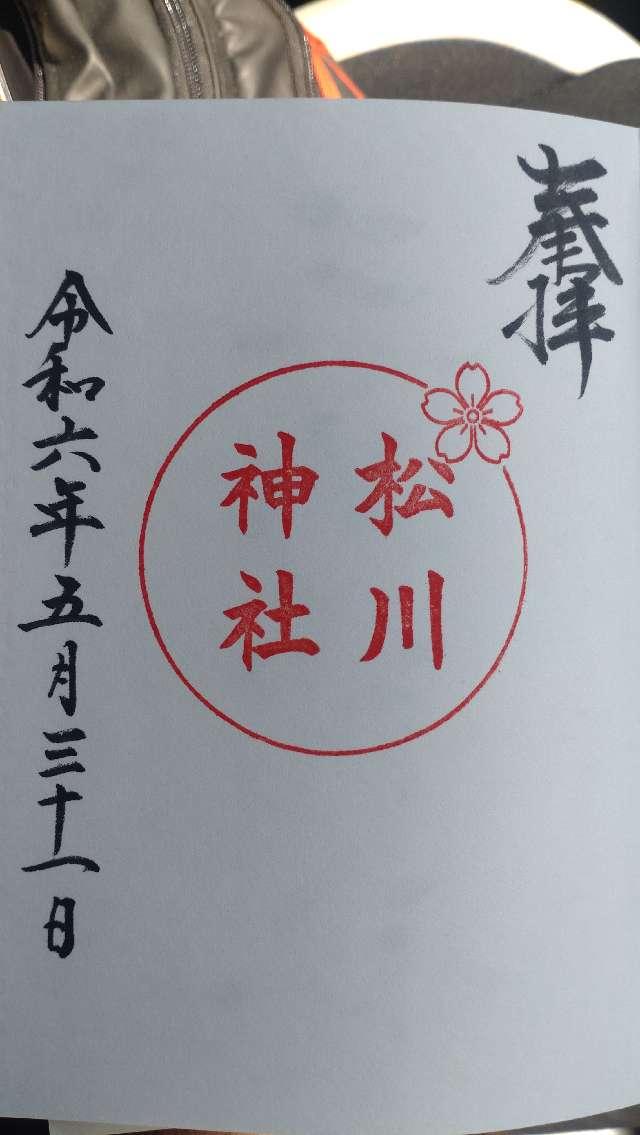 奉拝
松川
神社
令和六年五月三十一日